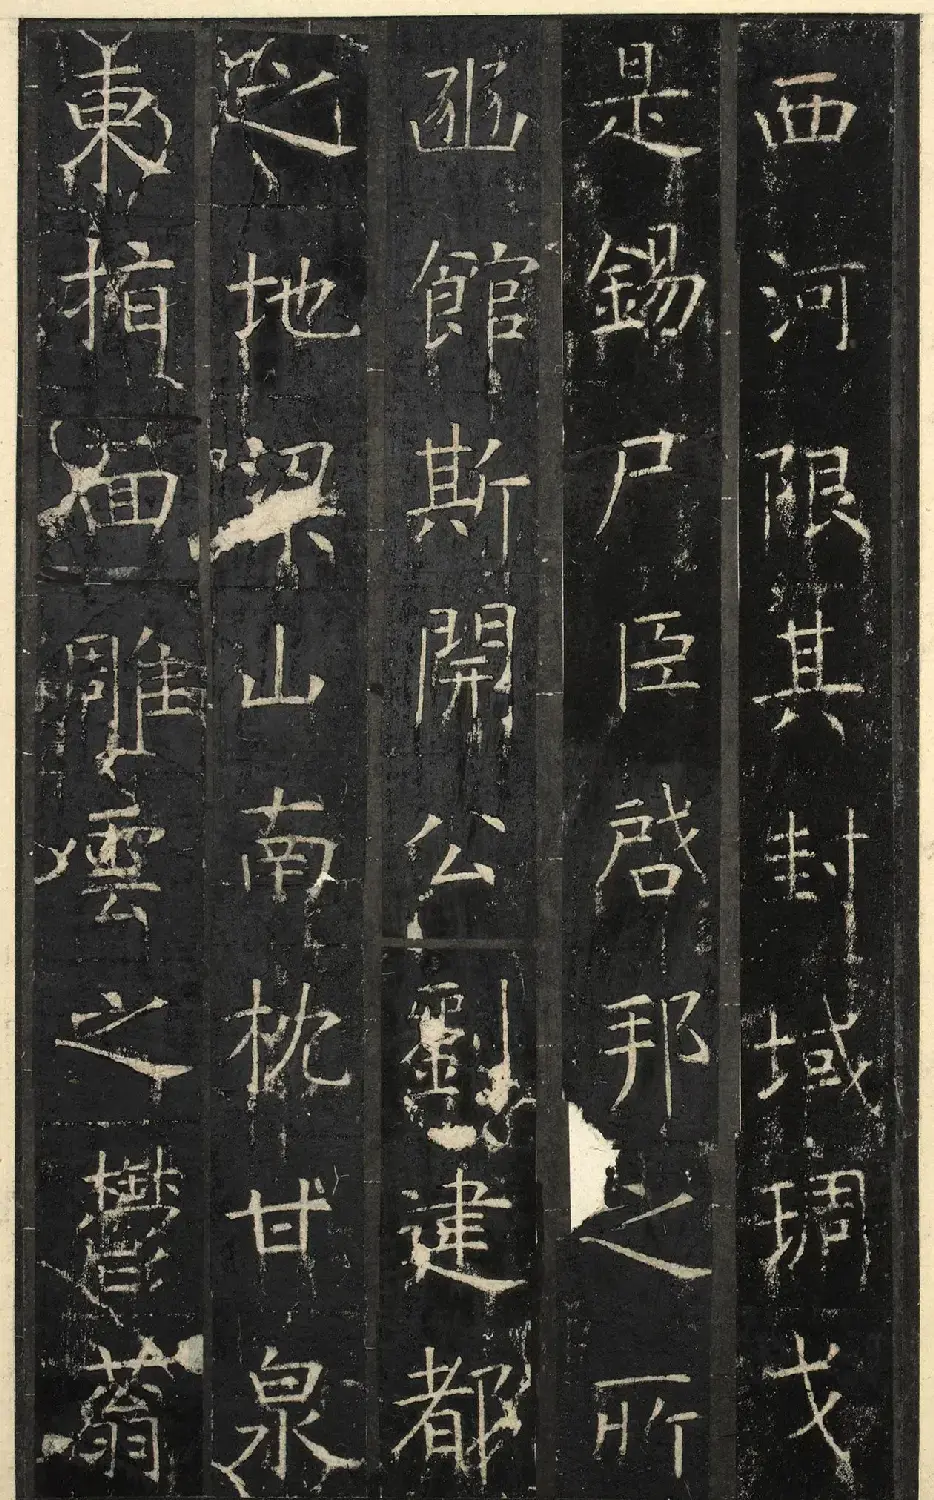 西河限其封域琱戈
是錫尸臣啓邦之所
豳館斯開公劉建都
之地梁山南枕甘泉
東指面雕雲之鬱蓊